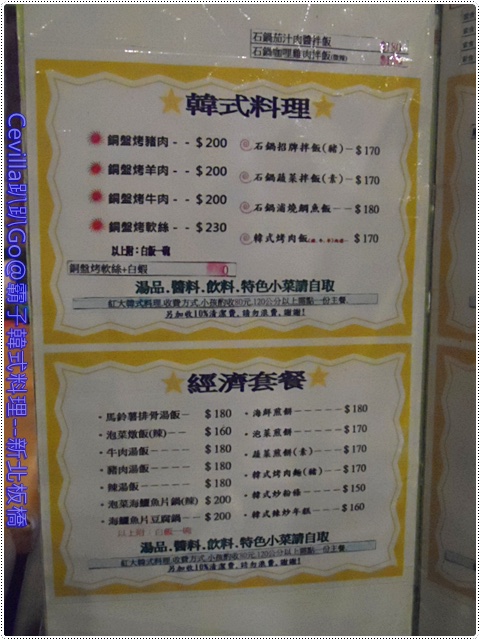 石鍋茄汁肉醬拌飯
石鍋咖哩雞肉拌飯
韓式料理
銅盤烤豬肉 - - $200
銅盤烤羊肉 - - $200
銅盤烤牛肉 - - $200
銅盤烤軟絲 - - $230
以上附：白飯一碗
銅盤烤軟絲+白蝦
石鍋招牌拌飯(豬)－$170
石鍋蔬菜拌飯(素)－$170
石鍋浦燒鯛魚飯－－$180
韓式烤肉飯 $170
湯品.醬料.飲料.特色小菜請自取
紅大韓式料理,收費方式,小孩酌收80元,120公分以上需點一份主餐.
另加收10%清潔費,請勿浪費,謝謝!
經濟套餐
・馬鈴薯排骨湯飯－ $180
・泡菜燉飯(辣)－－ $160
・牛肉湯飯－－－－ $180
・豬肉湯飯－－－－ $180
・辣湯飯－－－－－ $180
・泡菜海鱺魚片鍋(辣) $200
・海鱺魚片豆腐鍋－－ $200
以上附：白飯一碗
・海鮮煎餅－－－－－$180
・泡菜煎餅－－－－－$170
・蔬菜煎餅(素)－－－$170
・韓式烤肉麵(豬)－－$170
・韓式炒粉條－－－－$150
・韓式辣炒年糕－－－$160
湯品.醬料.飲料.特色小菜請自取
紅大韓式料理,收費方式,小孩酌收80元,120公分以上需點一份主餐.
另加收10%清潔費,請勿浪費,謝謝!
Cevilla趴趴Go@霸子韓式料理--新北板橋